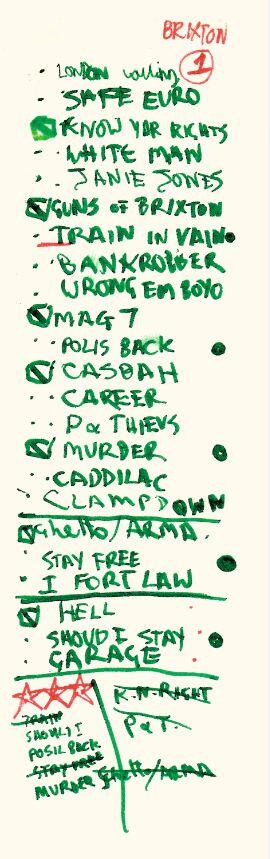 BRIXTON
1
LONDON calling
SAFE EURO
KNOW YOR RIGHTS
WHITE MAN
JANIE JONES
GUNS OF BRIXTON
TRAIN IN VAIN
BANKROBBER
WRONG EM BOYO
MAG 7
POLIS BACK
CASBAH
CAREER
P & THIEVS
MURDER
CADDILAC
CLAMPDOWN
Ghetto/ARMA.
STAY FREE
I FORT LAW
HELL
SHOUD I STAY
GARAGE
K.N.RIGHT
TRAIN
P & T.
SHOULD I
POSIL BACK
STAY FREE
Ghetto/ARMA
MURDER